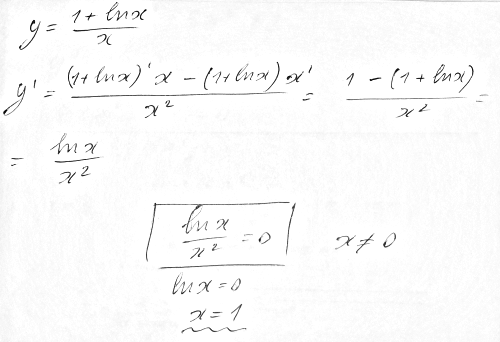 y = (1 + ln x) / x
y' = ((1 + ln x)' x − (1 + ln x) · x') / x² = (1 − (1 + ln x)) / x² =
= ln x / x²
ln x / x² = 0    x ≠ 0
ln x = 0
x = 1